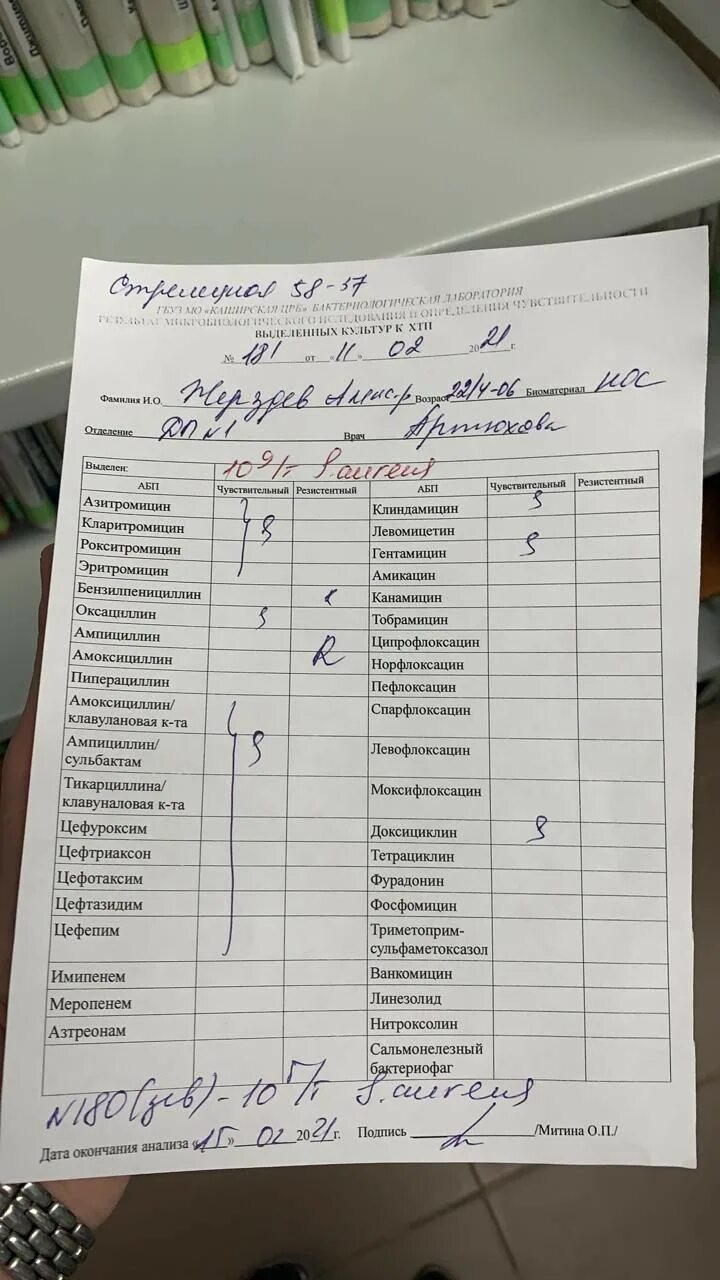 Стрелецкая 58-37
ГБУЗ МО «КАШИРСКАЯ ЦРБ» БАКТЕРИОЛОГИЧЕСКАЯ ЛАБОРАТОРИЯ
РЕЗУЛЬТАТ МИКРОБИОЛОГИЧЕСКОГО ИСЛЕДОВАНИЯ И ОПРЕДЕЛЕНИЯ ЧУВСТВИТЕЛЬНОСТИ
ВЫДЕЛЕННЫХ КУЛЬТУР К ХТП
№ 181 от «11» 02 2021г.
Фамилия И.О. Возраст 22/4-06 Биоматериал нос
Отделение ДП №1 Врач Артюхова
Выделен: S.aureus
АБП Чувствительный Резистентный АБП Чувствительный Резистентный
Азитромицин Клиндамицин S
Кларитромицин S Левомицетин
Рокситромицин Гентамицин S
Эритромицин Амикацин
Бензилпенициллин Канамицин
Оксациллин S Тобрамицин
Ампициллин Ципрофлоксацин
Амоксициллин R Норфлоксацин
Пиперациллин Пефлоксацин
Амоксициллин/ Спарфлоксацин
клавулановая к-та
Ампициллин/ S Левофлоксацин
сульбактам
Тикарциллина/ Моксифлоксацин
клавуналовая к-та
Цефуроксим Доксициклин S
Цефтриаксон Тетрациклин
Цефотаксим Фурадонин
Цефтазидим Фосфомицин
Цефепим Триметоприм-
сульфаметоксазол
Имипенем Ванкомицин
Меропенем Линезолид
Азтреонам Нитроксолин
Сальмонелезный
бактериофаг
N180 (зев) - 10 S.aureus
Дата окончания анализа «15» 02 2021г. Подпись /Митина О.П./